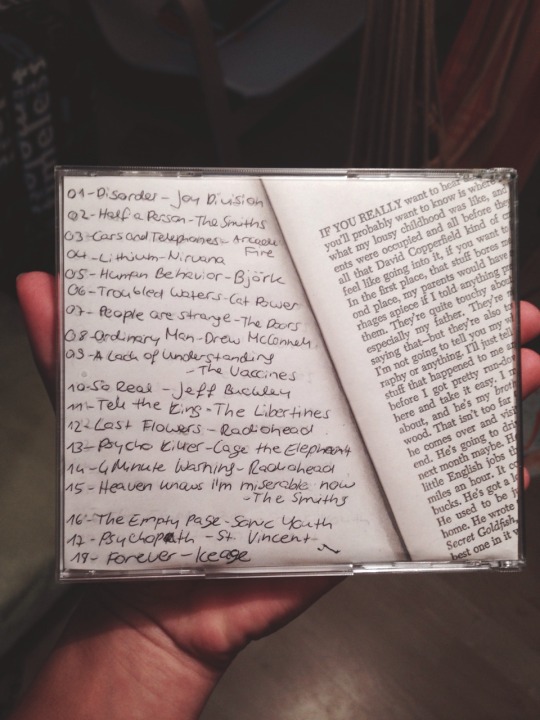 01-Disorder-Joy Division
02-Half a Person-The Smiths
03-Cars and Telephones-Arcade
Fire
04-Lithium-Nirvana
05-Human Behavior-Björk
06-Troubled Waters-Cat Power
07-People are strange-The Doors
08-Ordinary Man-Drew McConnell
09-A Lack of Understanding
-The Vaccines
10-So Real-Jeff Buckley
11-Tell the King-The Libertines
12-Last Flowers-Radiohead
13-Psycho Killer-Cage the Elephant
14-4 Minute Warning-Radiohead
15-Heaven knows i'm miserable now
-The Smiths
16-The Empty Page-Sonic Youth
17-Psychopath-St. Vincent
18-Forever-Iceage
IF YOU REALLY want to hear
you'll probably want to know is where
what my lousy childhood was like, and
ents were occupied and all before they
all that David Copperfield kind of
feel like going into it, if you want
In the first place, that stuff bores me
ond place, my parents would have
rhages apiece if I told anything
them. They're quite touchy about
especially my father. They're
saying that—but they're also
I'm not going to tell you my
raphy or anything. I'll just tell
stuff that happened to me
before I got pretty run-down
here and take it easy. I
about, and he's my brother
wood. That isn't too far
he comes over and
end. He's going to
next month maybe. He
little English jobs
miles an hour. It
bucks. He's got a
He used to be
home. He wrote
Secret Goldfish,
best one in it